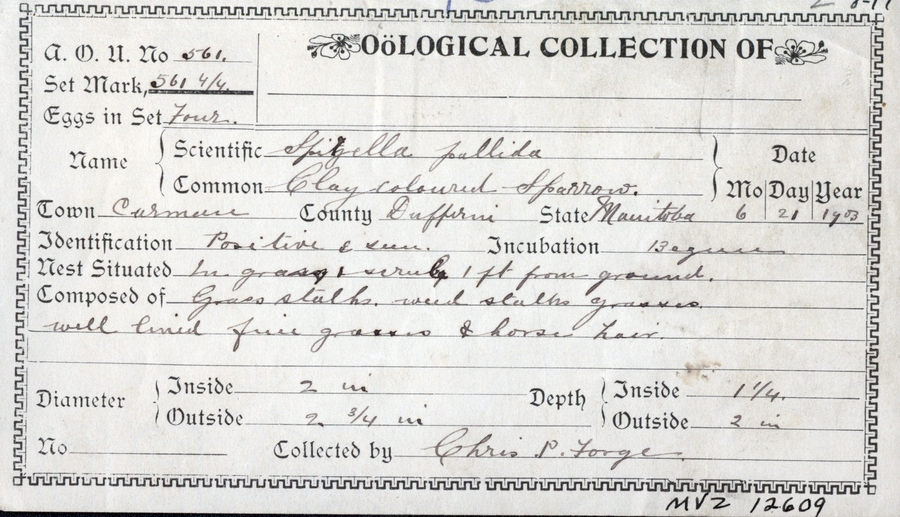 A. O. U. No 561.
OöLOGICAL COLLECTION OF
Set Mark, 561 4/4
Eggs in Set Four.
Name
Scientific Spizella pallida
Common Clay coloured Sparrow.
Date
Mo Day Year
Town Carman County Dufferin State Manitoba 6 21 1903
Identification Positive & seen. Incubation Begun
Nest Situated In grass & scrub, 1 ft from ground.
Composed of Grass stalks, weed stalks grasses
well lined fine grasses & horse hair.
Diameter
Inside 2 in
Outside 2 3/4 in
Depth
Inside 1 1/4.
Outside 2 in
No Collected by Chris P. Forge.
MVZ 12609